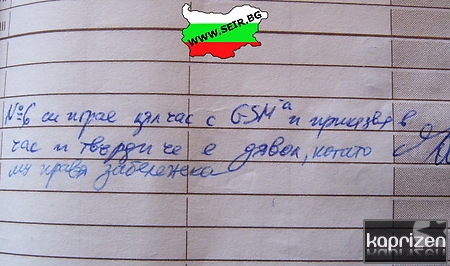 WWW.SEIR.BG
№6 си играе цял час с GSM-а и приказва в
час и твърди че е дявол, когато
му правя забележка
kaprizen